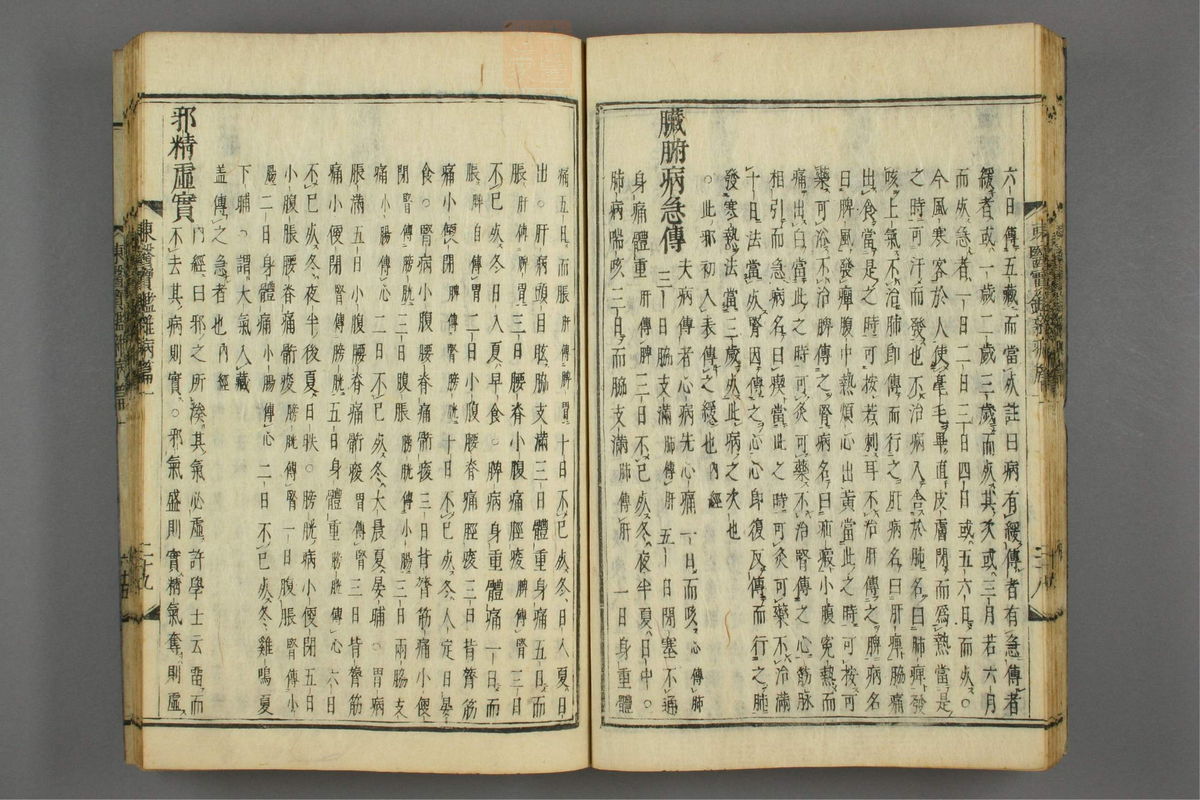 六日傳五藏而當死註曰病有緩傳者有急傳者
緩者或一歲二歲三歲而死其次或三月若六月
而死急者一日二日三日四日或五六日而死
今風寒客於人使毫毛畢直皮膚閉而爲熱當是
之時可汗而發也不治病入舍於肺名曰肺痺發
咳上氣不治肺卽傳而行之肝病名曰肝痺脇痛
出食當是之時可按若刺耳不治肝傳之脾病名
曰脾風發癉腹中熱煩心出黃當此之時可按可
藥可浴不治脾傳之腎病名曰疝瘕小腹寃熱而
痛出白當此之時可灸可藥不治腎傳之心筋脉
相引而急病名曰瘈當此之時可灸可藥不治滿
十日法當死腎因傳之心心卽復反傳而行之肺
發寒熱法當三歲死此病之次也
○此邪初入表傳之緩也內經
臟腑病急傳
夫病傳者心病先心痛一日而咳心傳肺
三日脇支滿肺傳肝五日閉塞不通
身痛體重肝傳脾三日不已死冬夜半夏日中○
肺病喘咳三日而脇支滿肺傳肝一日身重體
痛五日而脹肝傳脾胃十日不已死冬日入夏日
出○肝病頭目眩脇支滿三日體重身痛五日而
脹肝傳脾胃三日腰脊小腹痛脛痠肝傳腎三日
不已死冬日入夏早食○脾病身重體痛一日而
脹脾自傳胃二日小腹腰脊痛脛痠三日背膂筋
痛小便閉脾傳腎膀十日不已死冬人定日晏
食○腎病小腹腰脊痛䯒痠三日背膂筋痛小便
閉腎傳膀胱三日腹脹膀胱傳小腸三日兩脇支
痛小腸傳心二日不已死冬大晨夏晏晡○胃病
脹滿五日小腹腰脊痛䯒痠胃傳腎三日背膂筋
痛小便閉腎傳膀胱五日身體重膀胱傳心六日
不已死冬夜半後夏日昳○膀胱病小便閉五日
小腹脹腰脊痛䯒痠膀胱傳腎一日腹脹腎傳小
腸二日身體痛小腸傳心二日不已死冬雞鳴夏
下晡○謂大氣入藏
蓋傳之急者也內經
邪精虛實
內經曰邪之所湊其氣必虛許學士云留而
不去其病則實○邪氣盛則實精氣奪則虛
東醫寶鑑雜病篇一
二十九